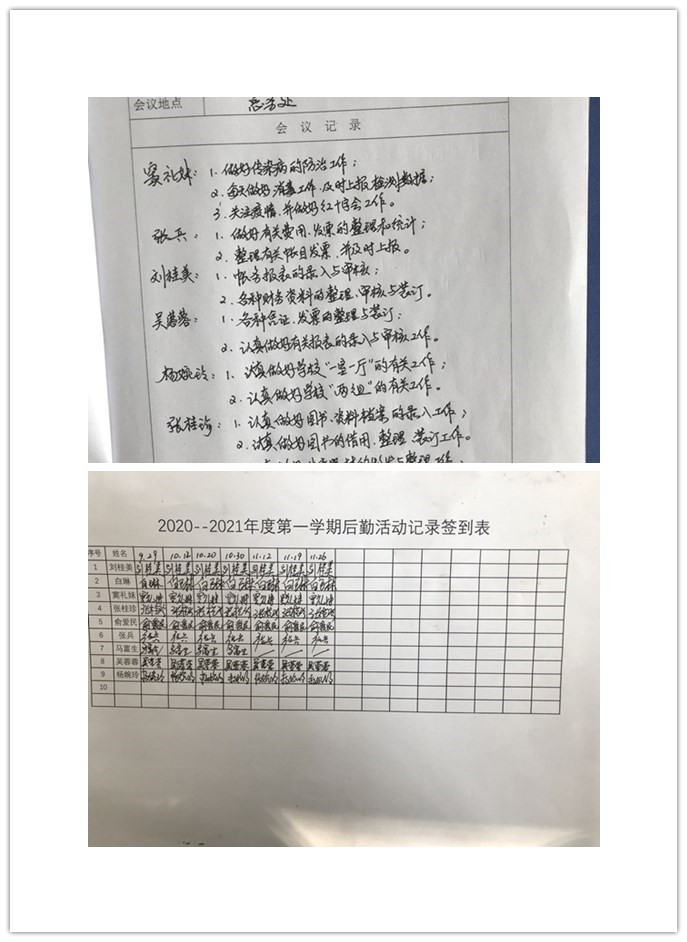 会议地点 总务处
会 议 记 录
窦礼妹：1. 做好传染病的防治工作；
2. 每天做好消毒工作，及时上报检测数据；
3. 关注疫情，并做好红十字会工作。
张兵：1. 做好有关费用、发票的整理和统计；
2. 整理有关帐目发票，并及时上报。
刘桂美：1. 帐务报表的录入与审核；
2. 各种财务资料的整理、审核与装订。
吴蓉蓉：1. 各种凭证、发票的整理与装订；
2. 认真做好有关报表的录入与审核工作。
杨婉玲：1. 认真做好学校“一室一厅”的有关工作；
2. 认真做好学校“两组”的有关工作。
张桂珍：1. 认真做好图书、资料档案的录入工作；
2. 认真做好图书的借用、整理、装订工作。
2020--2021年度第一学期后勤活动记录签到表
序号 姓名 9.29 10.12 10.20 10.30 11.12 11.19 11.26
1 刘桂美 刘桂美 刘桂美 刘桂美 刘桂美 刘桂美 刘桂美 刘桂美
2 白琳 白琳 白琳 白琳 白琳 白琳 白琳 白琳
3 窦礼妹 窦礼妹 窦礼妹 窦礼妹 窦礼妹 窦礼妹 窦礼妹 窦礼妹
4 张桂珍 张桂珍 张桂珍 张桂珍 张桂珍 张桂珍 张桂珍 张桂珍
5 俞爱民 俞爱民 俞爱民 俞爱民 俞爱民 俞爱民 俞爱民 俞爱民
6 张兵 张兵 张兵 张兵 张兵 张兵 张兵 张兵
7 马富生 马富生 马富生 马富生 马富生
8 吴蓉蓉 吴蓉蓉 吴蓉蓉 吴蓉蓉 吴蓉蓉 吴蓉蓉 吴蓉蓉 吴蓉蓉
9 杨婉玲 杨婉玲 杨婉玲 杨婉玲 杨婉玲 杨婉玲 杨婉玲 杨婉玲
10